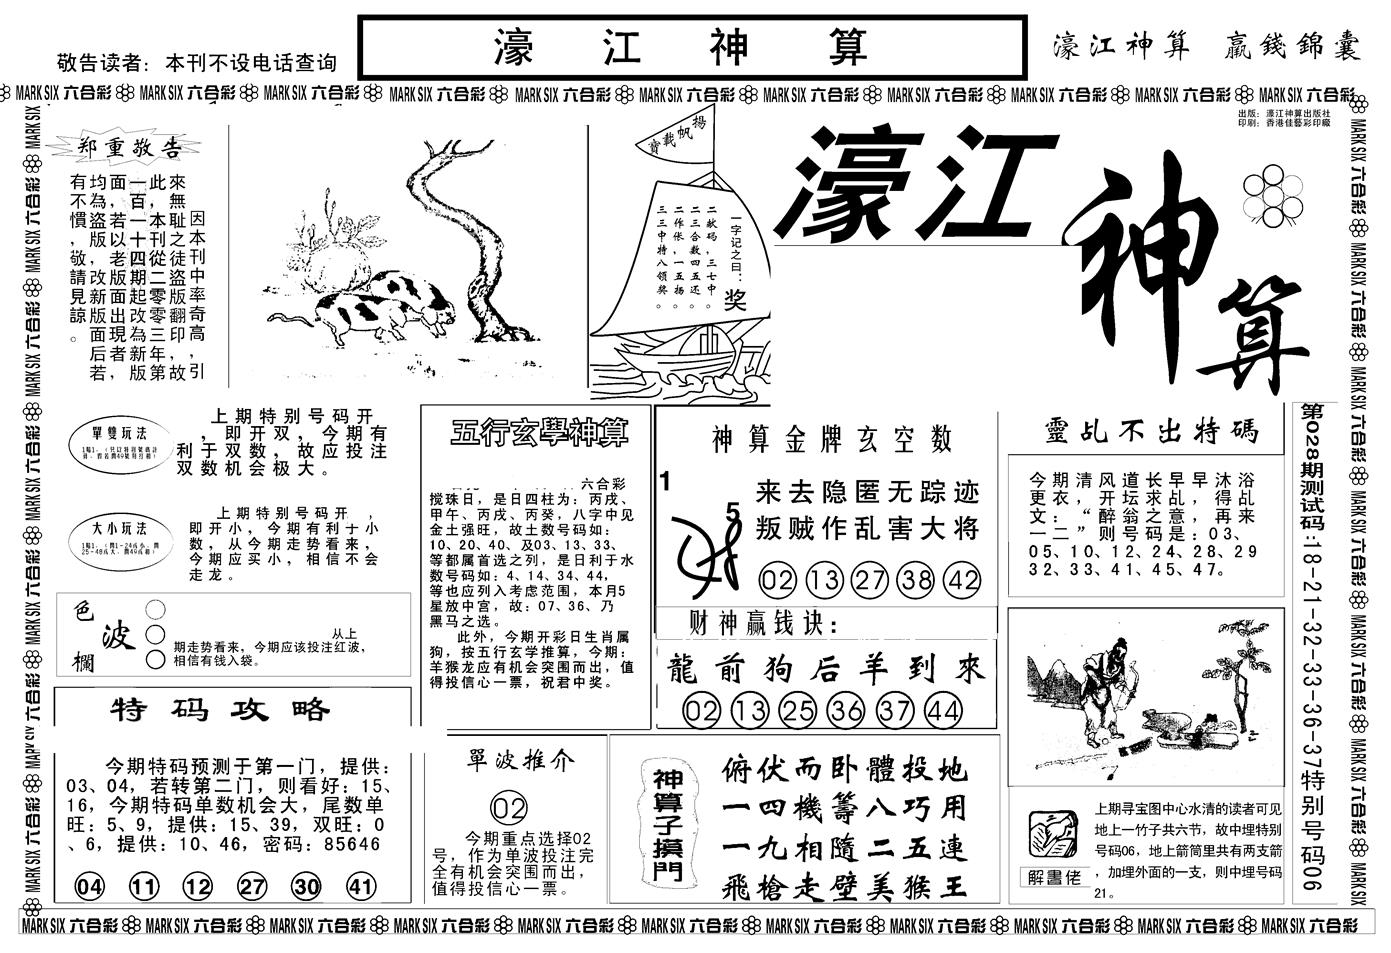 敬告读者：本刊不设电话查询
濠江神算
濠江神算 贏錢錦囊
MARK SIX 六合彩 MARK SIX 六合彩 MARK SIX 六合彩 MARK SIX 六合彩 MARK SIX 六合彩 MARK SIX 六合彩 MARK SIX 六合彩 MARK SIX 六合彩 MARK SIX 六合彩 MARK SIX 六合彩 MARK SIX 六合彩
出版：濠江神算出版社
印刷：香港佳藝彩印廠
郑重敬告
因本刊中率奇高，引
來無耻之徒盜版翻印，故
此，本刊從二零零三年第
一百一十四期起改為新版，
面，若以老版面出現者
均為盜版，改新版面后若，
有不慣，敬請見諒。
揚帆載寶
一字记之曰：奖
二献码，三七中。
二三合数四五还。
二作伥，一五扬。
三三中特八领奖。
濠江
神算
單雙玩法
上期特别号码开
，即开双，今期有
利于双数，故应投注
双数机会极大。
大小玩法
上期特别号码开，
即开小，今期有利十小
数，从今期走势看来，
今期应买小，相信不会
走龙。
色波欄
从上
期走势看来，今期应该投注红波，
相信有钱入袋。
特码攻略
今期特码预测于第一门，提供：
03、04，若转第二门，则看好：15、
16，今期特码单数机会大，尾数单
旺：5、9，提供：15、39，双旺：0
、6，提供：10、46，密码：85646
04 11 12 27 30 41
五行玄學神算
六合彩
搅珠日，是日四柱为：丙戌、
甲午、丙戌、丙癸，八字中见
金土强旺，故土数号码如：
10、20、40、及03、13、33、
等都属首选之列，是日利于水
数号码如：4、14、34、44，
等也应列入考虑范围，本月5
星放中宫，故：07、36、乃
黑马之选。
此外，今期开彩日生肖属
狗，按五行玄学推算，今期：
羊猴龙应有机会突围而出，值
得投信心一票，祝君中奖。
單波推介
02
今期重点选择02
号，作为单波投注完
全有机会突围而出，
值得投信心一票。
神算金牌玄空数
1
5
来去隐匿无踪迹
叛贼作乱害大将
02 13 27 38 42
财神赢钱诀：
龍前狗后羊到來
02 13 25 36 37 44
神算子摸門
俯伏而卧體投地
一四機籌八巧用
一九相隨二五連
飛槍走壁美猴王
靈乩不出特碼
今期清风道长早早沐浴
更衣，开坛求乩，得乩
文：“醉翁之意，再来
一二”则号码是：03、
05、10、12、24、28、29
32、33、41、45、47。
解畫佬
上期寻宝图中心水清的读者可见
地上一竹子共六节，故中埋特别
号码06，地上箭筒里共有两支箭
，加埋外面的一支，则中埋号码
21。
第028期测试码：18-21-32-33-36-37特别号码06
MARK SIX 六合彩 MARK SIX 六合彩 MARK SIX 六合彩 MARK SIX 六合彩 MARK SIX 六合彩 MARK SIX 六合彩 MARK SIX 六合彩 MARK SIX 六合彩 MARK SIX 六合彩 MARK SIX 六合彩 MARK SIX 六合彩